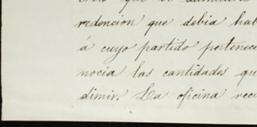 redencion que debia hab
á cuyo partido pertenec
nocia las cantidades qu
dimir. La oficina rec